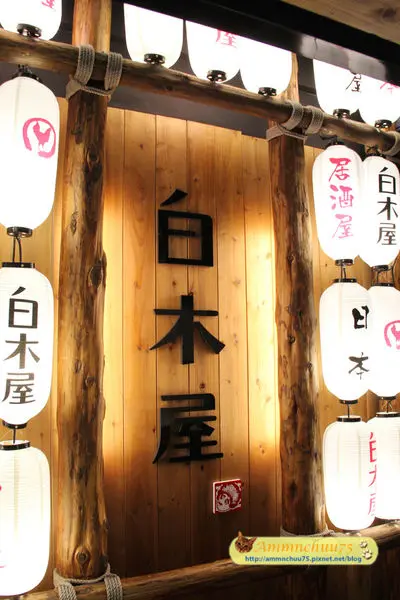 白木屋
白木屋
居酒屋
白木屋
日本
白木屋
屋
Ammnchuu75
http://ammnchuu75.pixnet.net/blog